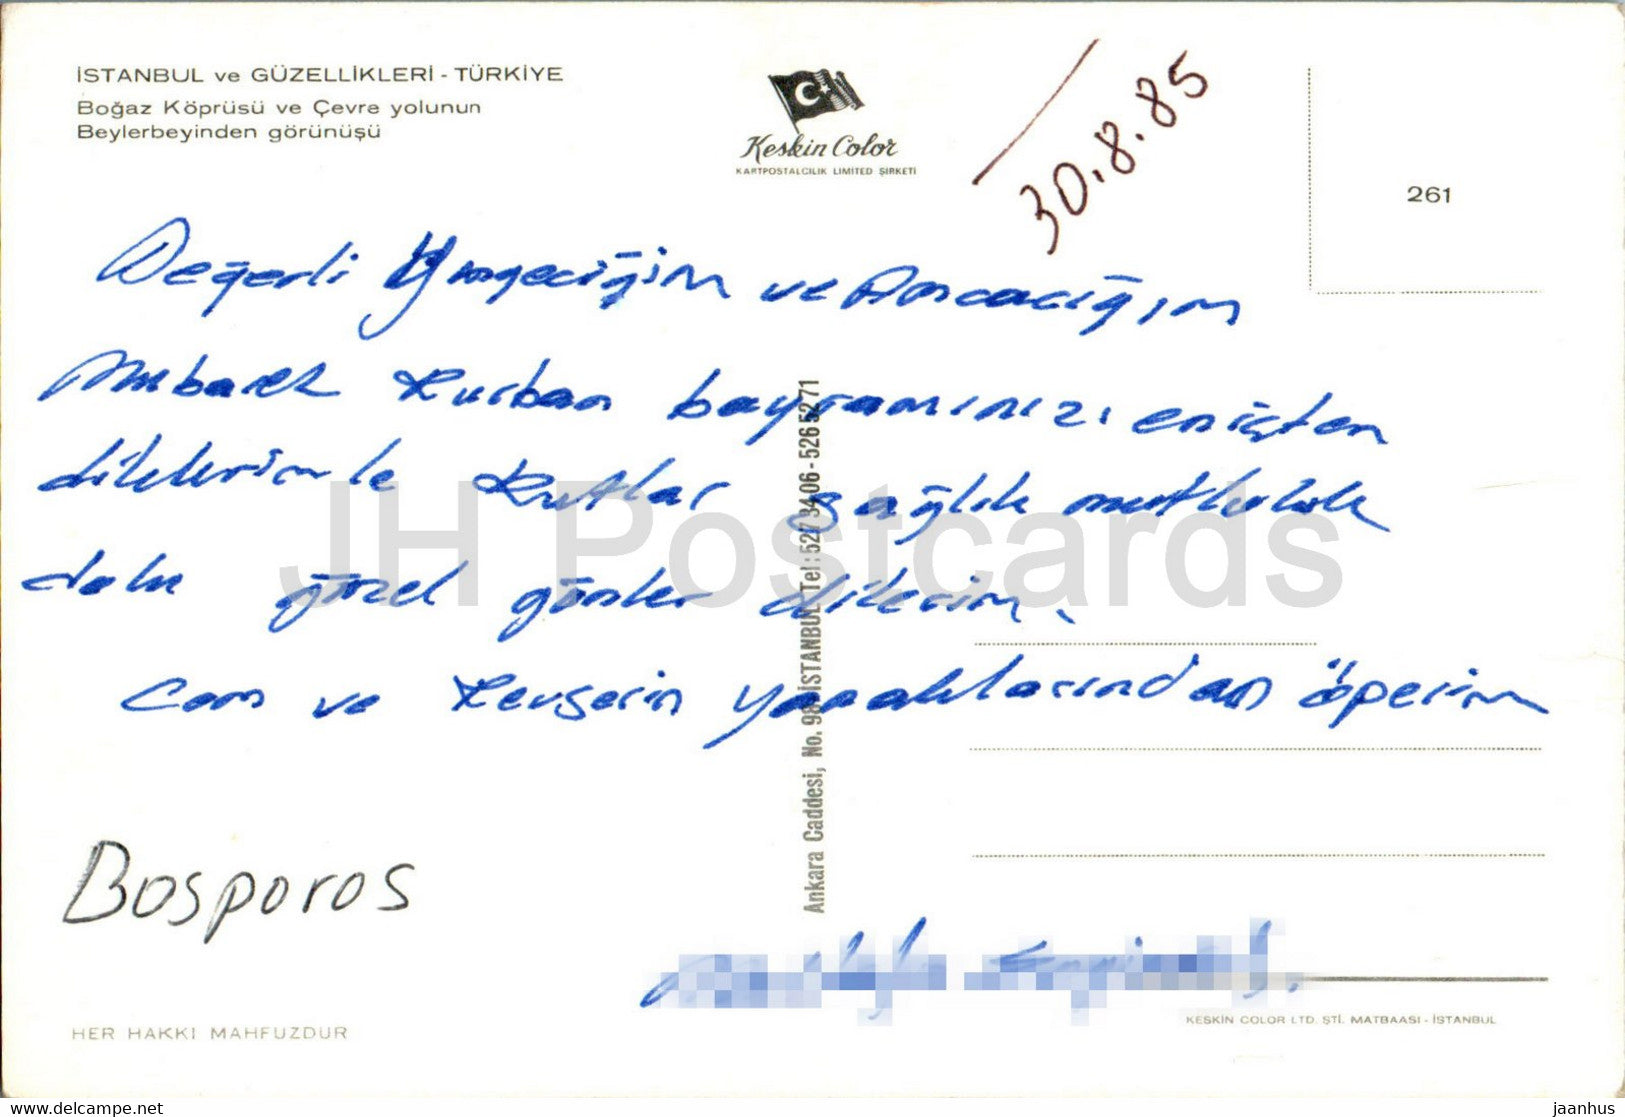 İSTANBUL ve GÜZELLİKLERİ - TÜRKİYE
Boğaz Köprüsü ve Çevre yolunun
Beylerbeyinden görünüşü
Keskin Color
KARTPOSTALCILIK LIMITED ŞİRKETİ
30.8.85
261
Değerli Yengeciğim ve Amcacığım
Mubarek Kurban bayramınızı en içten
dileklerimle kutlar sağlık mutluluk
dolu güzel günler dilerim.
Can ve Kevserin yanaklarından öperim
Ankara Caddesi, No. 98 İSTANBUL Tel: 527 34 06 - 526 52 71
JH Postcards
Bosporos
HER HAKKI MAHFUZDUR
KESKİN COLOR LTD. ŞTİ. MATBAASI - İSTANBUL
www.delcampe.net
jaanhus